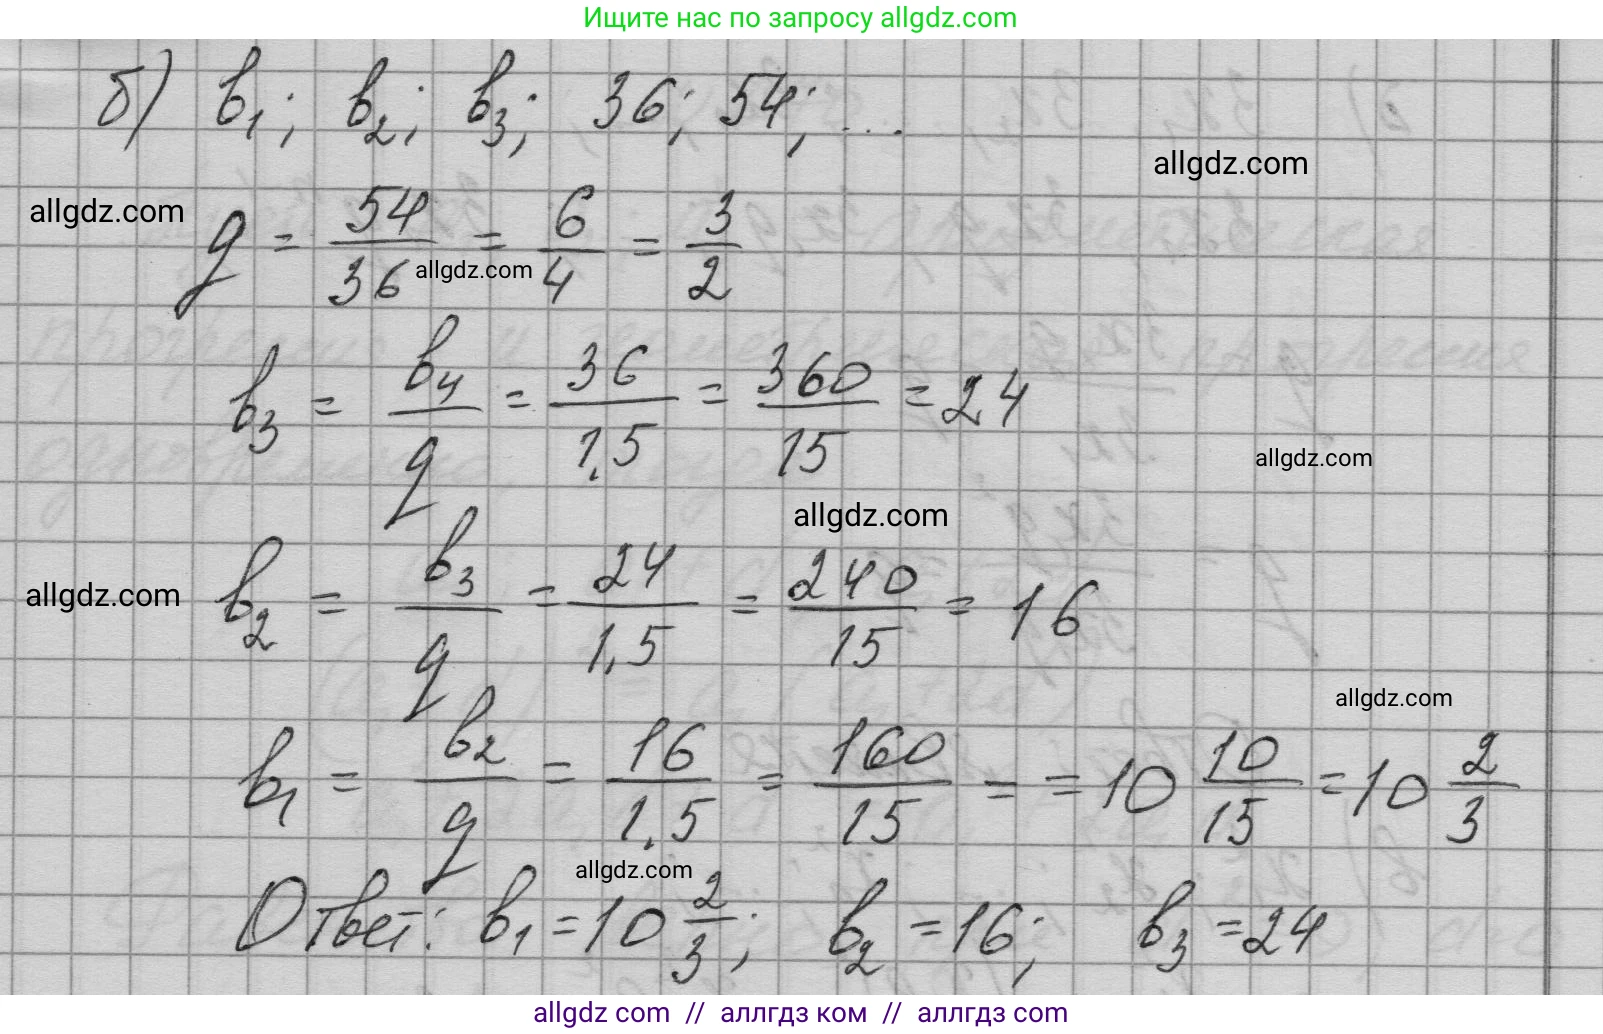 Ищите нас по запросу allgdz.com
б) b₁; b₂; b₃; 36; 54; ...
allgdz.com
allgdz.com
q = 54/36 = 6/4 = 3/2
allgdz.com
b₃ = b₄/q = 36/1,5 = 360/15 = 24
allgdz.com
allgdz.com
b₂ = b₃/q = 24/1,5 = 240/15 = 16
allgdz.com
allgdz.com
b₁ = b₂/q = 16/1,5 = 160/15 = = 10 10/15 = 10 2/3
allgdz.com
Ответ: b₁ = 10 2/3; b₂ = 16; b₃ = 24
allgdz.com // аллгдз ком // аллгдз.com